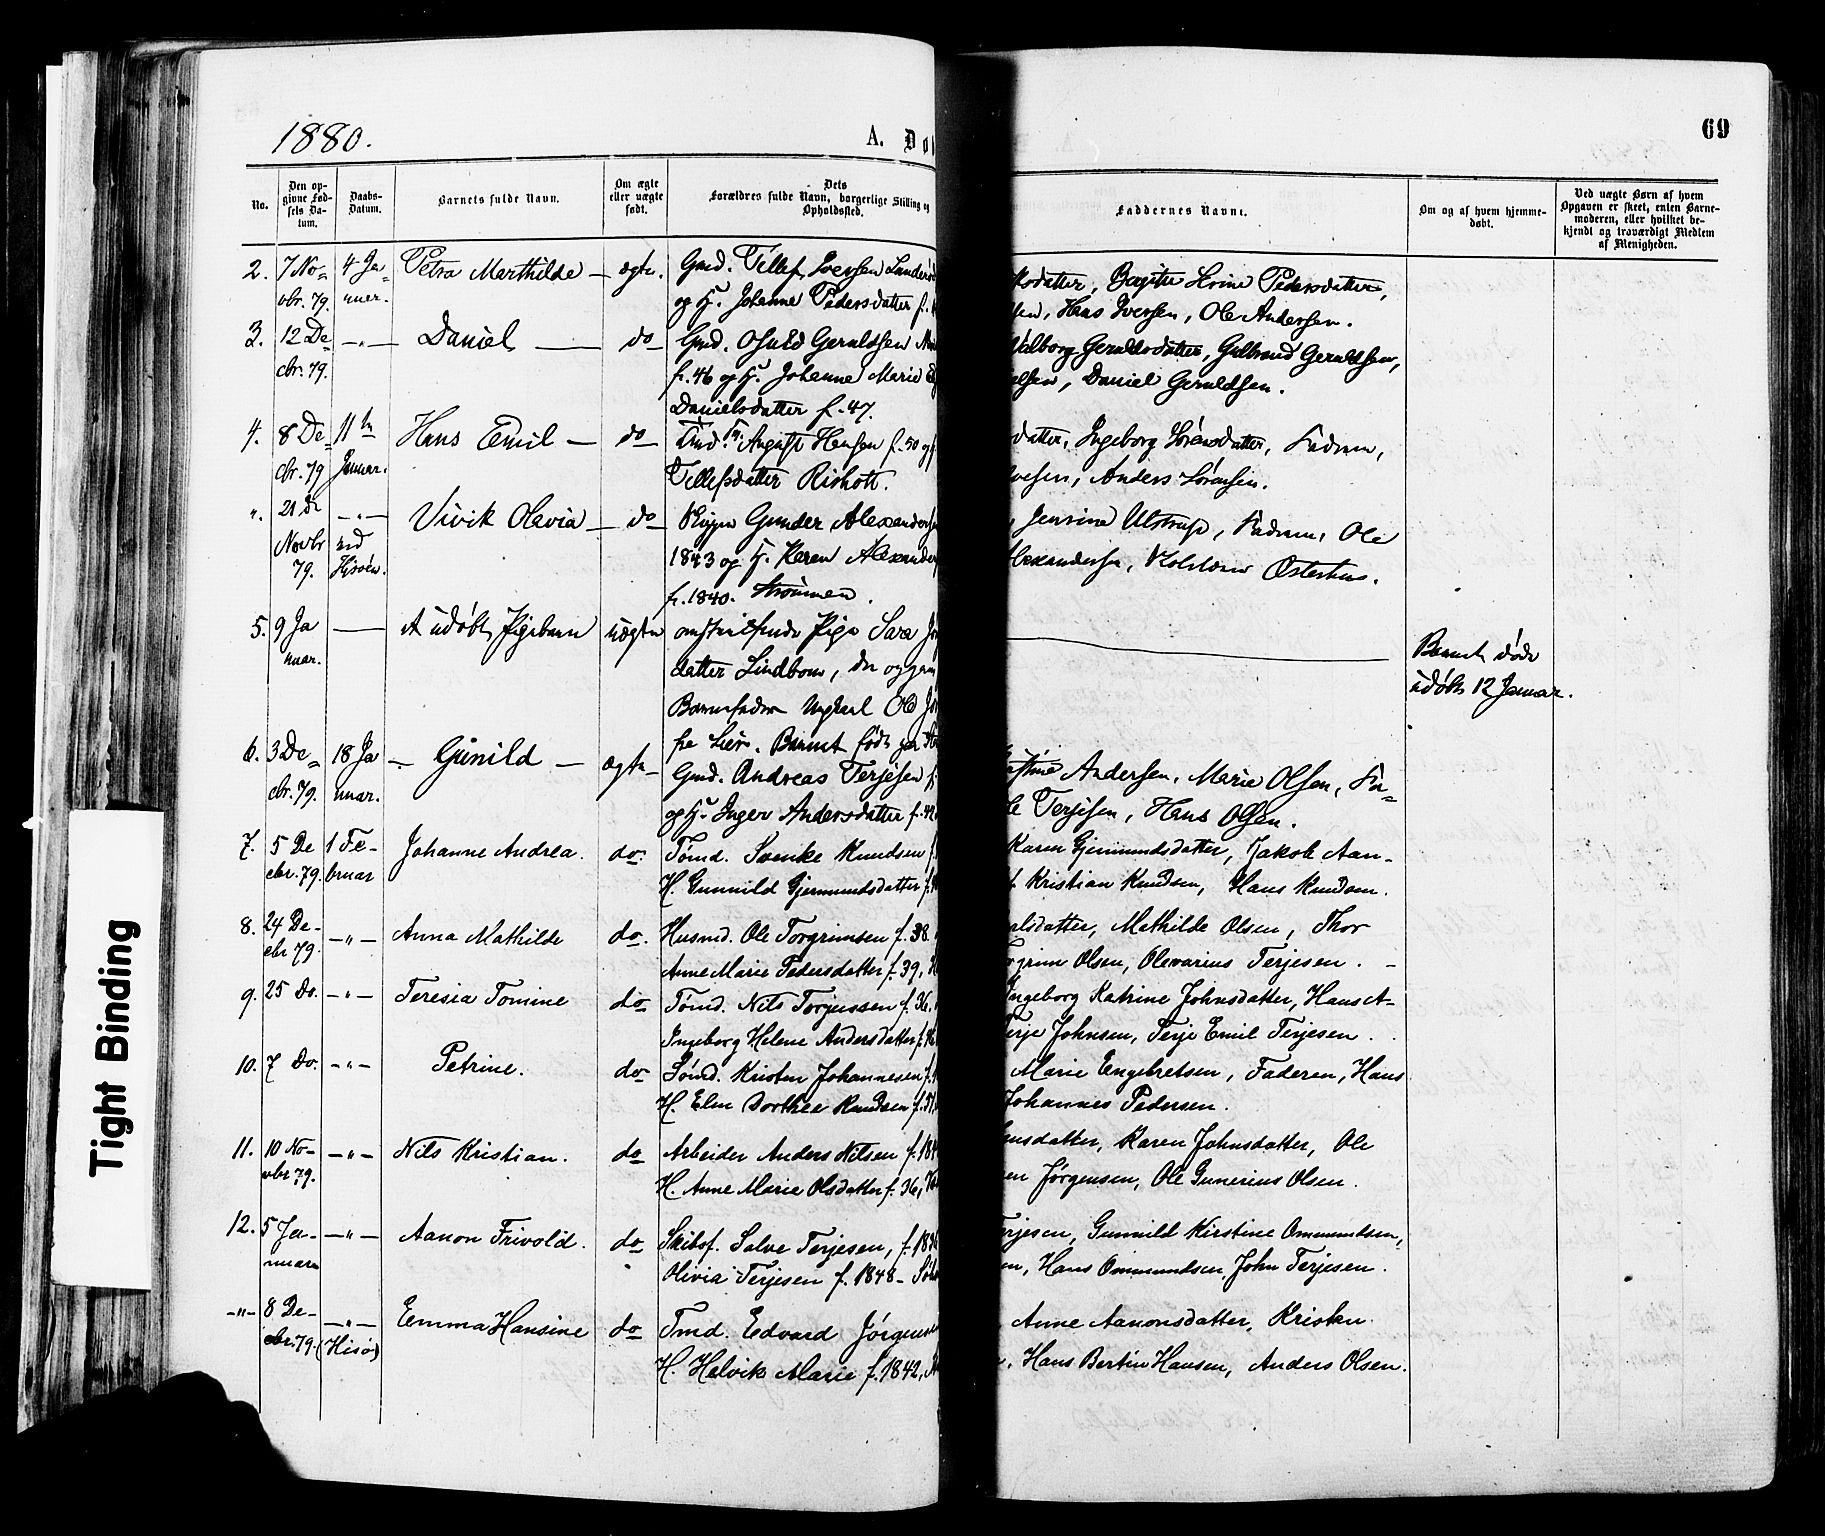 1880.
A. Dø
69
No.
Den op-
givne Fød-
sels Da-
tum.
Daabs-
Datum.
Barnets fulde Navn.
Om ægte
eller uægte
født.
Dets
Forældres fulde Navn, borgerlige Stilling og
Opholdssted.
Faddernes Navne.
Om og af hvem hjemme-
døbt.
Ved uægte Børn af hvem
Opgaven er skeet, enten Barne-
moderen, eller hvilket be-
kjendt og troværdigt Medlem
af Menigheden.
2. 7 No- 4 Ja- Petra Marthilde — ægte. Gmd. Tellef Iversen
vbr. 79. nuar. og H. Johanne Pedersdatter f.
datter, Pedersdatter,
Hans Iversen, Ole Andersen.
3. 12 De- —"— Daniel — do Gmd. Osuld Geruldsen
cbr. 79. f. 46 og H. Johanne Marie
Danielsdatter f. 47.
Valborg Geruldsdatter, Gulbrand Geruldsen,
elsen, Daniel Geruldsen.
4. 8 De- 11te Hans Emil — do August Hansen f. 50 og
cbr. 79 Januar. Tellefsdatter
datter, Ingeborg Sørensdatter, Fadren,
Anders Sørensen.
". 21 de —"— Vivik Olavia — do Gunder Alexandersen
Novbr ved 1843 og H. Karen Alexander
79. Hisøen. f. 1840. Strømmen.
Jensine Ulstrup, Fadren, Ole
Alexandersen, Østerhus.
5. 9 Ja — Et udøbt Pigebarn uægte omstreifende Pige Sara
nuar. datter Lindbom, der opgav
Barnefader Ungkarl Ole
fra Lier. Barnet født
Barnet døde
udøbt 12 Januar.
6. 3 De- 18 Ja — Gunild — ægte Gmd. Andreas Terjesen f.
cbr. 79. nuar. og H. Inger Andersdatter f. 42
Andersen, Marie Olsen, Fa-
Terjesen, Hans Olsen.
7. 5 De 1 Fe- Johanne Andrea. do. Tømd. Svenke Knudsen f.
cbr. 79. bruar H. Gunnild Gjermundsdatter f.
Karen Gjermundsdatter, Jakob Aan-
Kristian Knudsen, Hans Knudsen.
8. 24 De- —"— Anna Mathilde do. Husmd. Ole Torgrimsen f. 38.
cbr 79. Anne Marie Pedersdatter f. 39,
lsdatter, Mathilde Olsen, Thor
grim Olsen, Olevarius Terjesen. —
9. 25 Do. —"— Teresia Tomine do Tømd. Nils Torjussen f. 36.
Ingeborg Helene Andersdatter f.
Ingeborg Katrine Johnsdatter, Hans A-
Terje Johnsen, Terje Emil Terjesen.
10. 7 Do. —"— Petrine. do Sømd. Kristen Johannesen f.
H. Elen Dorthea Knudsen f.
Marie Engebretsen, Faderen, Hans
Johannes Pedersen.
11. 10 No- —"— Nils Kristian. do Arbeider Anders Nilsen f. 184
vbr 79. H. Anne Marie Olsdatter f. 36,
nsdatter, Karen Johnsdatter, Ole
en Jørgensen, Ole Gunerius Olsen.
12. 5 Ja- —"— Aanon Frivold. do Skibsf. Salve Terjesen, f. 1836
nuar Olivia Terjesen f. 1848 —
Terjesen, Gunnild Kirstine Ommundsen,
n, Hans Ommundsen, John Terjesen.
—"— 8 De- —"— Emma Hansine do Tmd. Edvard Jørgensen
cbr. 79. (Hisø) H. Helvik Marie f. 1842,
Anne Aanonsdatter, Kristen
Hans Bertin Hansen, Anders Olsen.
Tight Binding